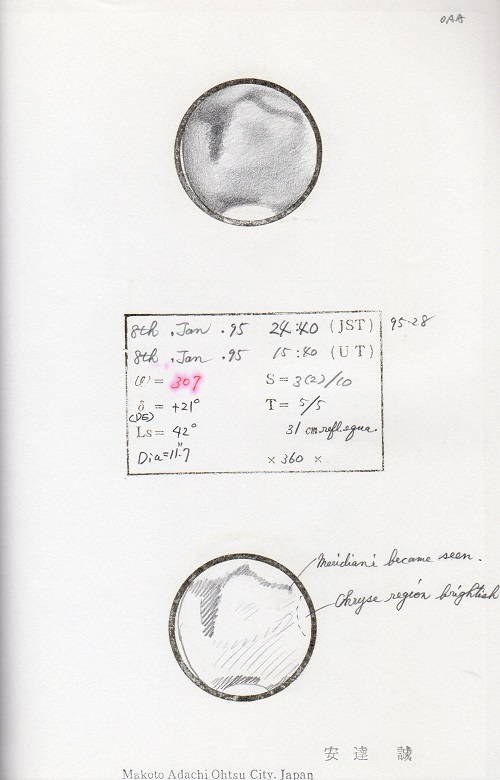 OAA
8th , Jan . 95 24:40 (JST) 95-28
8th , Jan . 95 15:40 (UT)
ω = 307 S = 3(2)/10
δ = +21° T = 5/5
(DE)
Ls = 42° 31 cm refl. equa.
Dia = 11".7 × 360 ×
Meridiani became seen.
Chryse region brightish
安達 誠
Makoto Adachi Ohtsu City. Japan